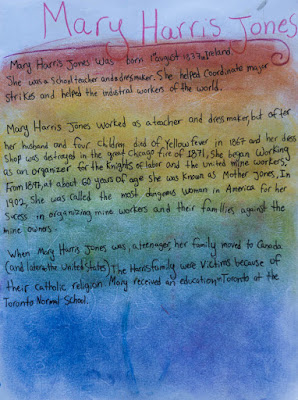 Mary Harris Jones
Mary Harris Jones was born 1st august 1837, Ireland.
She was a school teacher and a dress maker. She helped coordinate major
strikes and helped the industrial workers of the world.
Mary Harris Jones worked as a teacher and dress maker, but after
her husband and four children died of Yellow fever in 1867 and her dess
Shop was destroyed in the great Chicago fire of 1871, She began working
as an organizer for the Knights of labor and the united mine workers.
From 1897, at about 60 years of age she was known as Mother Jones, In
1902, She was called the most dangerous woman in America for her
Sucess in organizing mine workers and their families against the
mine owners.
When Mary Harris Jones was a teenager, her family moved to Canada
(and later the United States) The Harris family were victims because of
their catholic religion. Mary received an education in Toronto at the
Toronto Normal School.